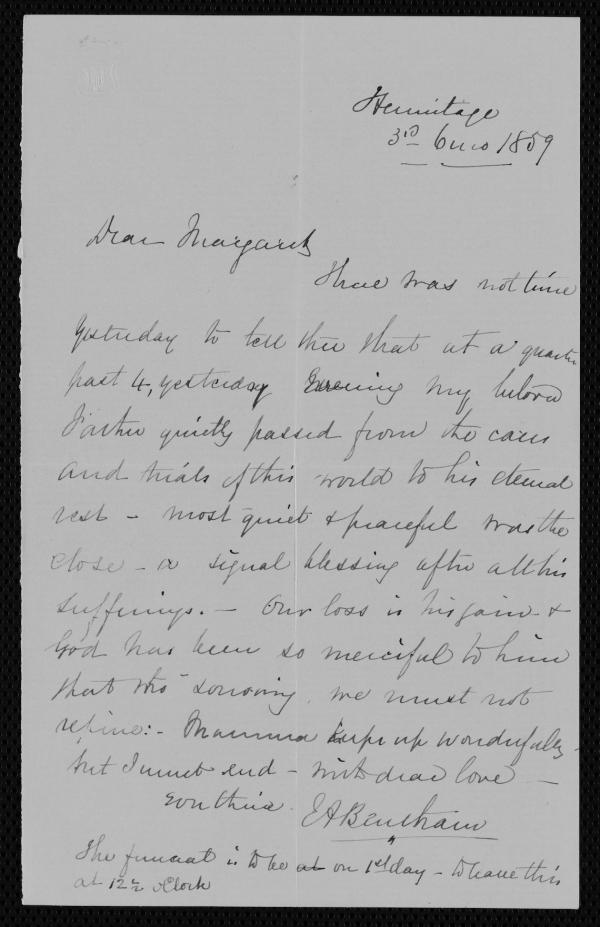 Hermitage
3rd 6 mo 1859
Dear Margaret
There was not time
yesterday to tell thee that at a quarter
past 4, yesterday Evening my beloved
Father quietly passed from the cares
and trials of this world to his eternal
rest - most quiet & peaceful was the
close - a signal blessing after all his
sufferings. - Our loss is his gain &
God has been so merciful to him
that tho' sorrowing, we must not
repine:- Mamma keeps up wonderfully -
but I must end - with dear love -
Ever thine
EABentham
The funeral is to be at on 1st day - to leave this
at 12½ oClock